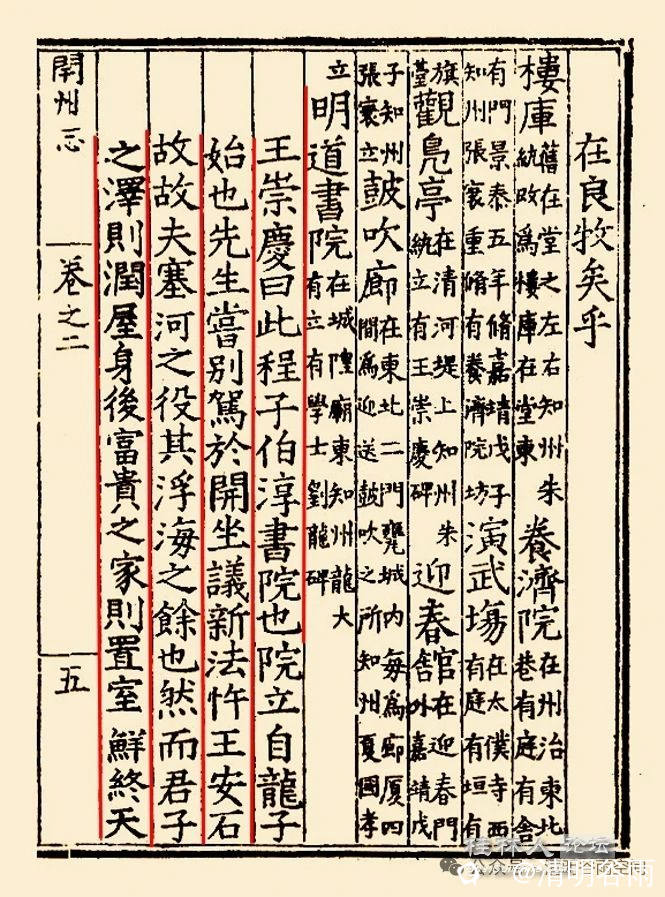 在良牧矣乎
樓庫舊在堂之左右知州朱統改爲樓庫在堂東養濟院在州治東北巷有庭有舍
有門景泰五年脩嘉靖戊子知州張寰重脩有養濟院坊演武場在太僕寺西有庭有垣有
旗臺觀鳧亭在清河堤上知州朱統立有王崇慶碑迎春舘在迎春門外嘉靖戊
子知州張寰立鼓吹廊在東北二門甕城内每爲廊厦四間爲迎送鼓吹之所知州夏國孝
立明道書院在城隍廟東知州龍大有立有學士劉龍碑
王崇慶曰此程子伯淳書院也院立自龍子
始也先生嘗別駕於開坐議新法忤王安石
故故夫塞河之役其浮海之餘也然而君子
之澤則潤屋身後富貴之家則置室鮮終天
開州志
卷之二
五
桂林人论坛
公众号
@清明谷雨